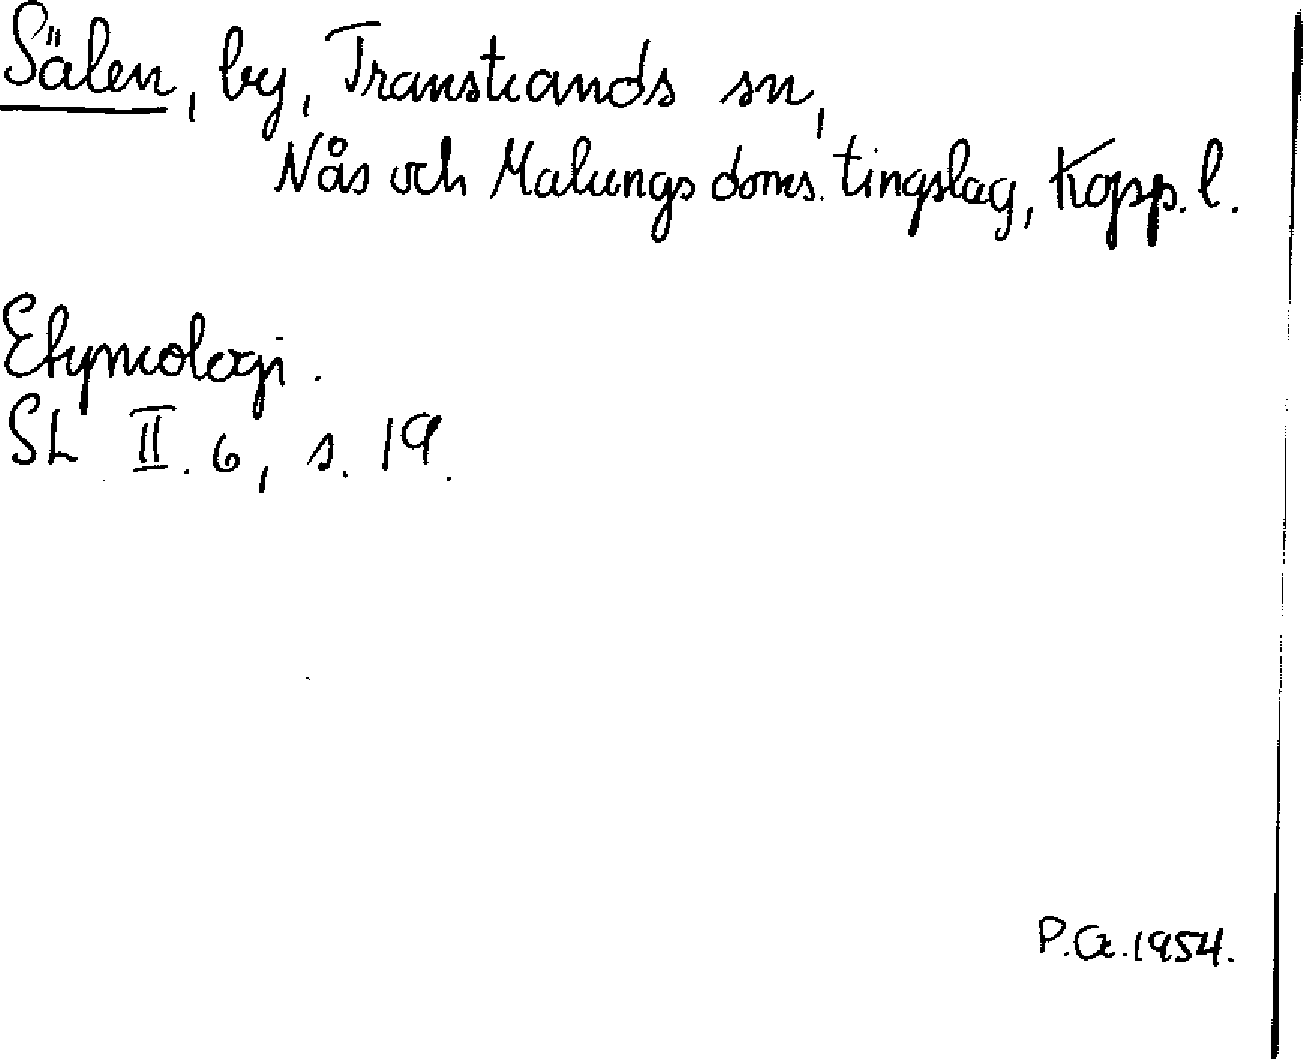 Sälen, by, Transtrands sn,
Nås och Malungs doms. tingslag, Kopp. l.
Etymologi.
SL II. 6, s. 19.
P.G. 1954.